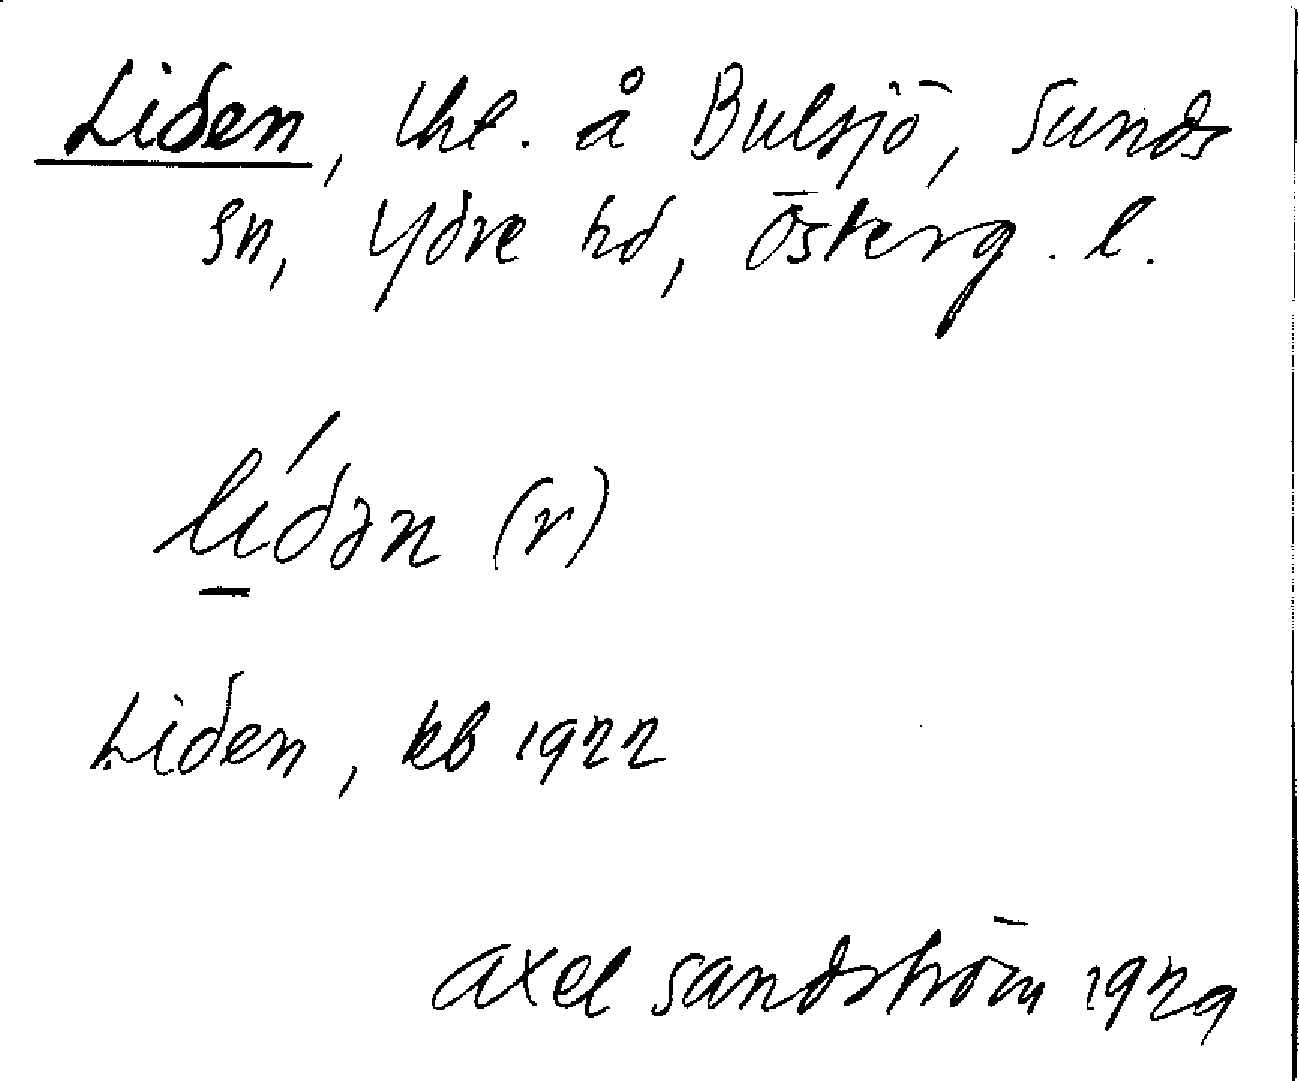 Liden, lht. å Bulsjö, Sunds
sn, Ydre hd, Österg. l.
lí̱dən (r)
Liden, kb 1922
Axel Sandström 1929